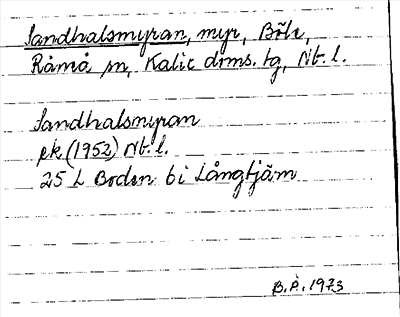 Sandhalsmyran, myr, Böle,
Råneå sn, Kalix doms. tg, Nb. l.
Sandhalsmyran
ek (1952) Nb. l.
25 L Boden bi Långtjärn
B.P. 1973